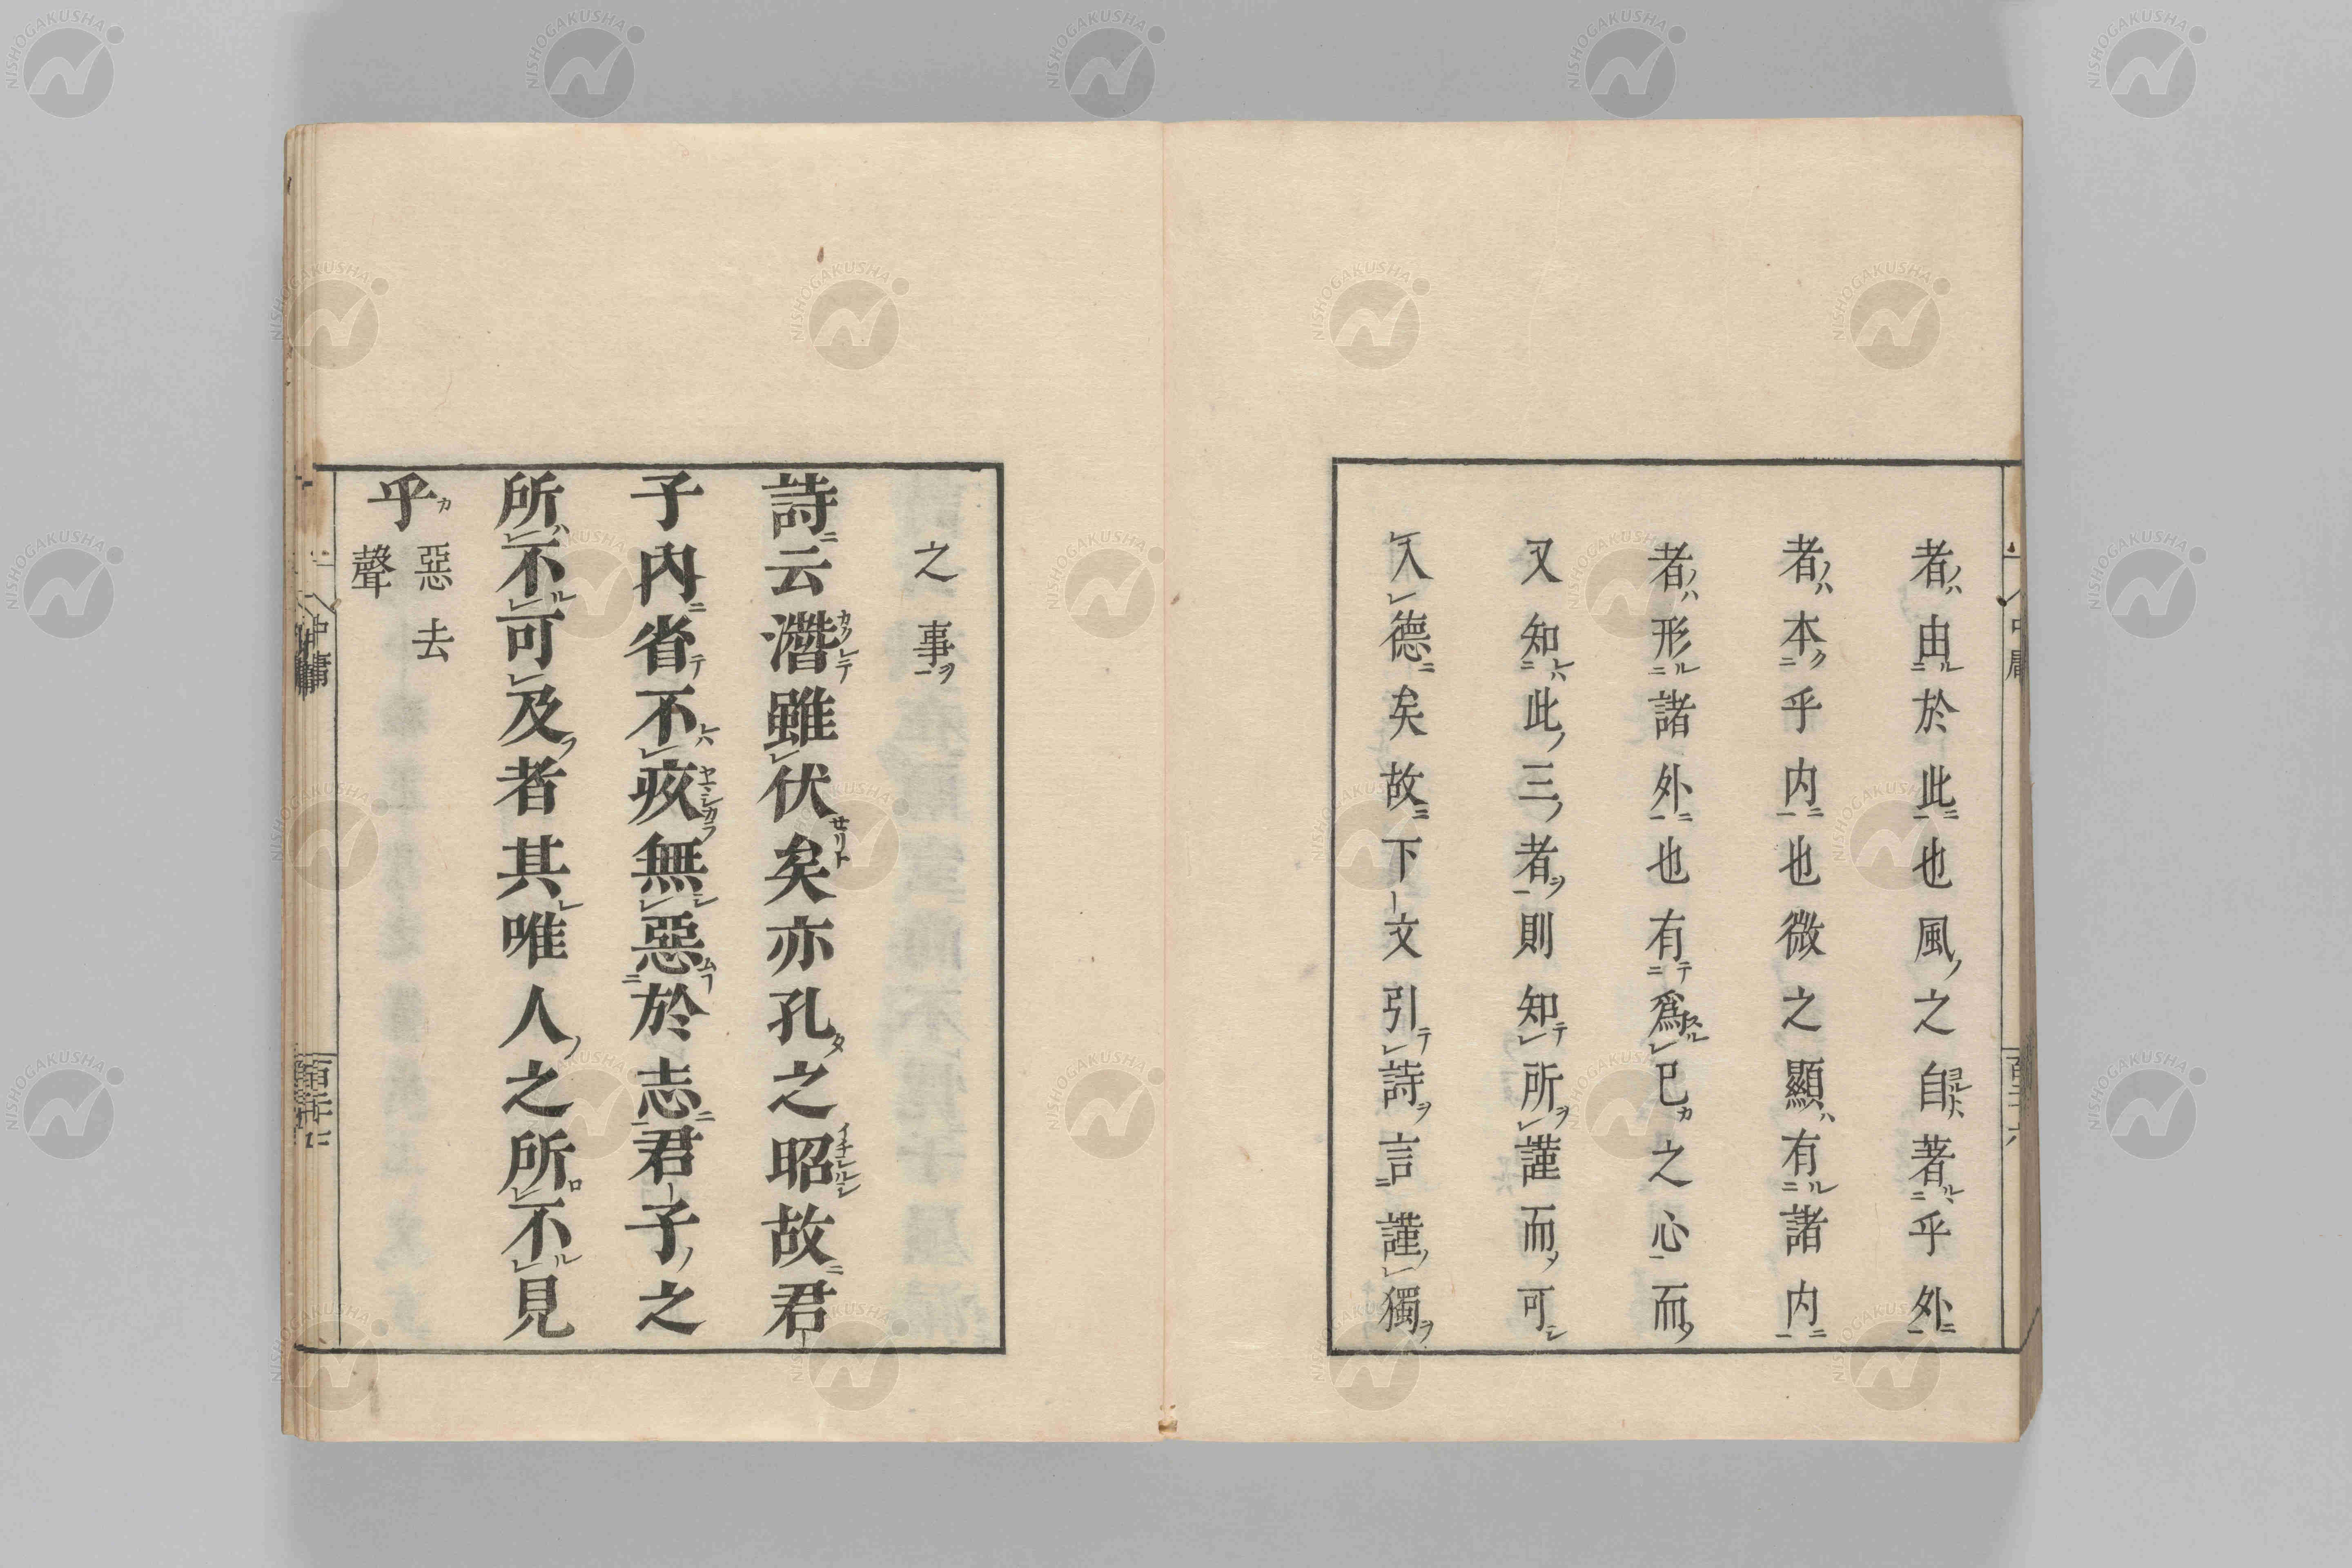 者由於此也風之自著乎外
者本乎内也微之顯有諸内
者形諸外也有爲己之心而
又知此三者則知所謹而可
入德矣故下文引詩言謹獨
之事
詩云潛雖伏矣亦孔之昭故君
子內省不疚無惡於志君子之
所不可及者其唯人之所不見
乎惡去
聲
中庸
NISHOGAKUSHA